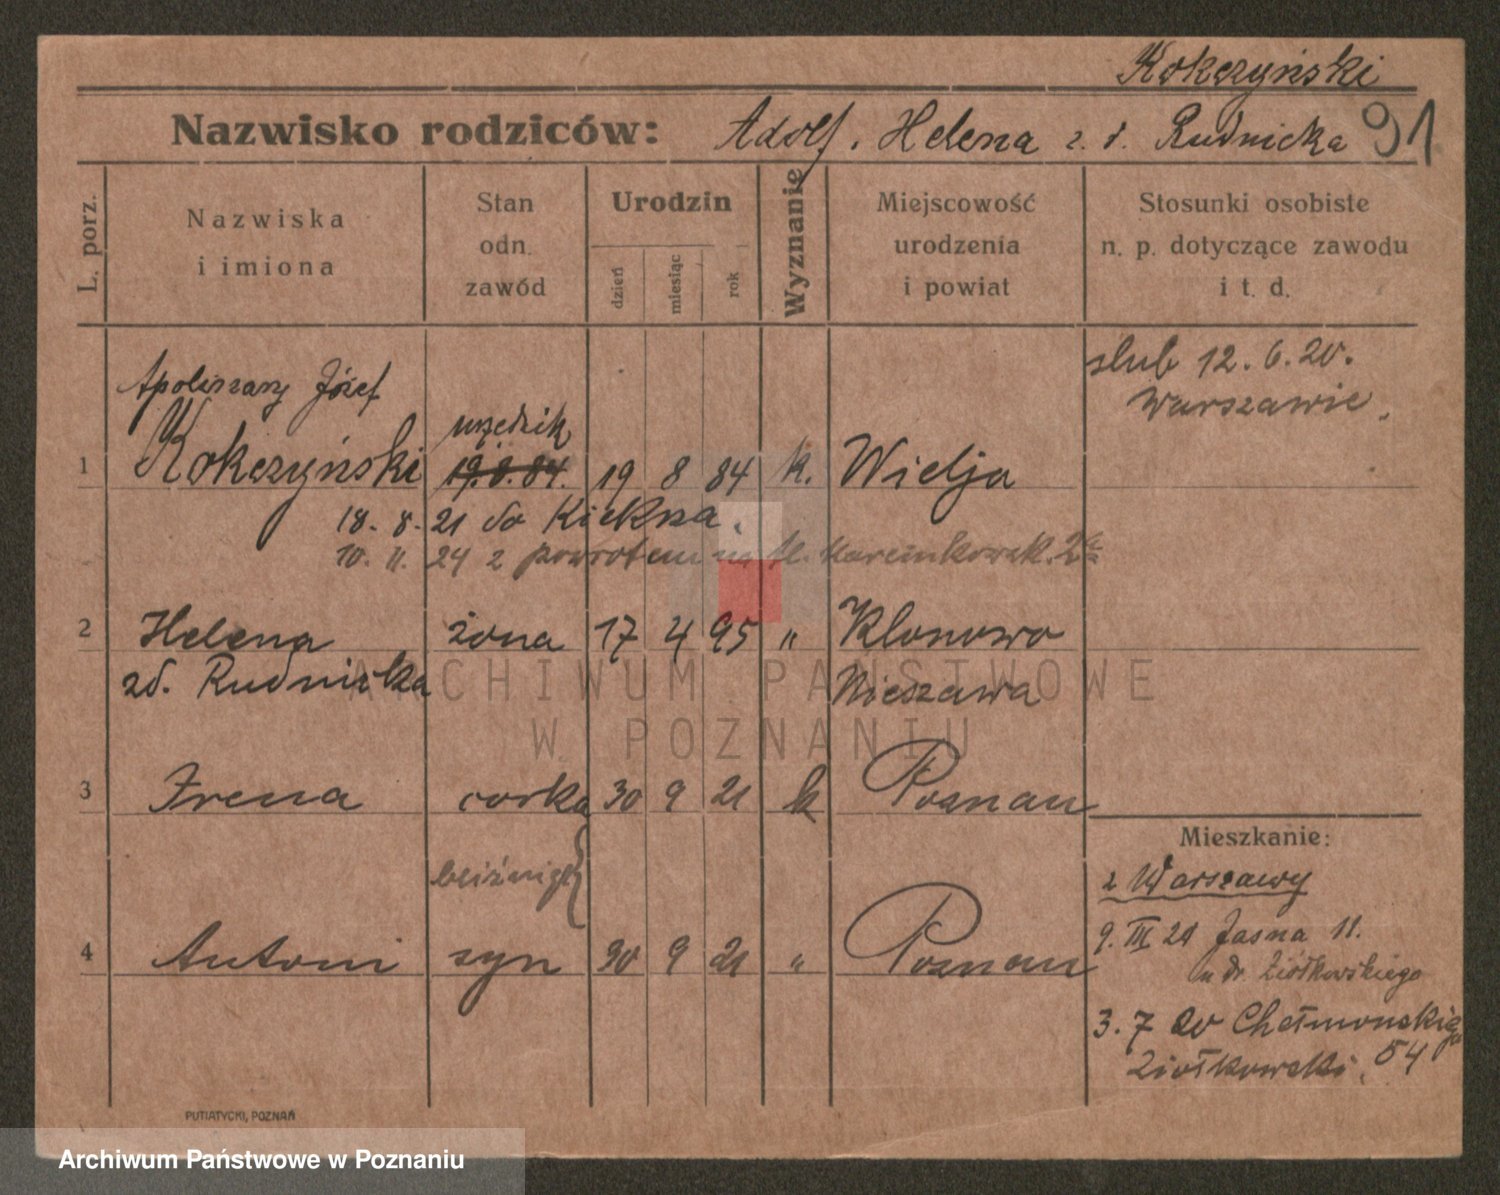 Kokczyński
Nazwisko rodziców: Adolf, Helena z. d. Rudnicka 91
L. porz.
Nazwiska
i imiona
Stan
odn.
zawód
Urodzin
dzień
miesiąc
rok
Wyznanie
Miejscowość
urodzenia
i powiat
Stosunki osobiste
n. p. dotyczące zawodu
i t. d.
ślub 12.6.20.
Warszawie.
Józef
urzędnik
1 Kokczyński 19.8.84. 19 8 84 k. Wielja
18.8.21 do Kiekrza.
10.11.24 z powrotem na Al. Marcinkowsk.
2 Helena żona 17 4 95 " Klonowo
zd. Rudnicka Nieszawa
3 Irena corka 30 9 21 k Poznan
bliźnięta
4 Antoni syn 30 9 21 " Poznan
Mieszkanie:
z Warszawy
9. III 21 Jasna 11.
u dr. Ziółkowskiego
3.7 20 Chełmonskiego
Ziółkowski. 54
PUTIATYCKI, POZNAŃ
ARCHIWUM PAŃSTWOWE
W POZNANIU
Archiwum Państwowe w Poznaniu